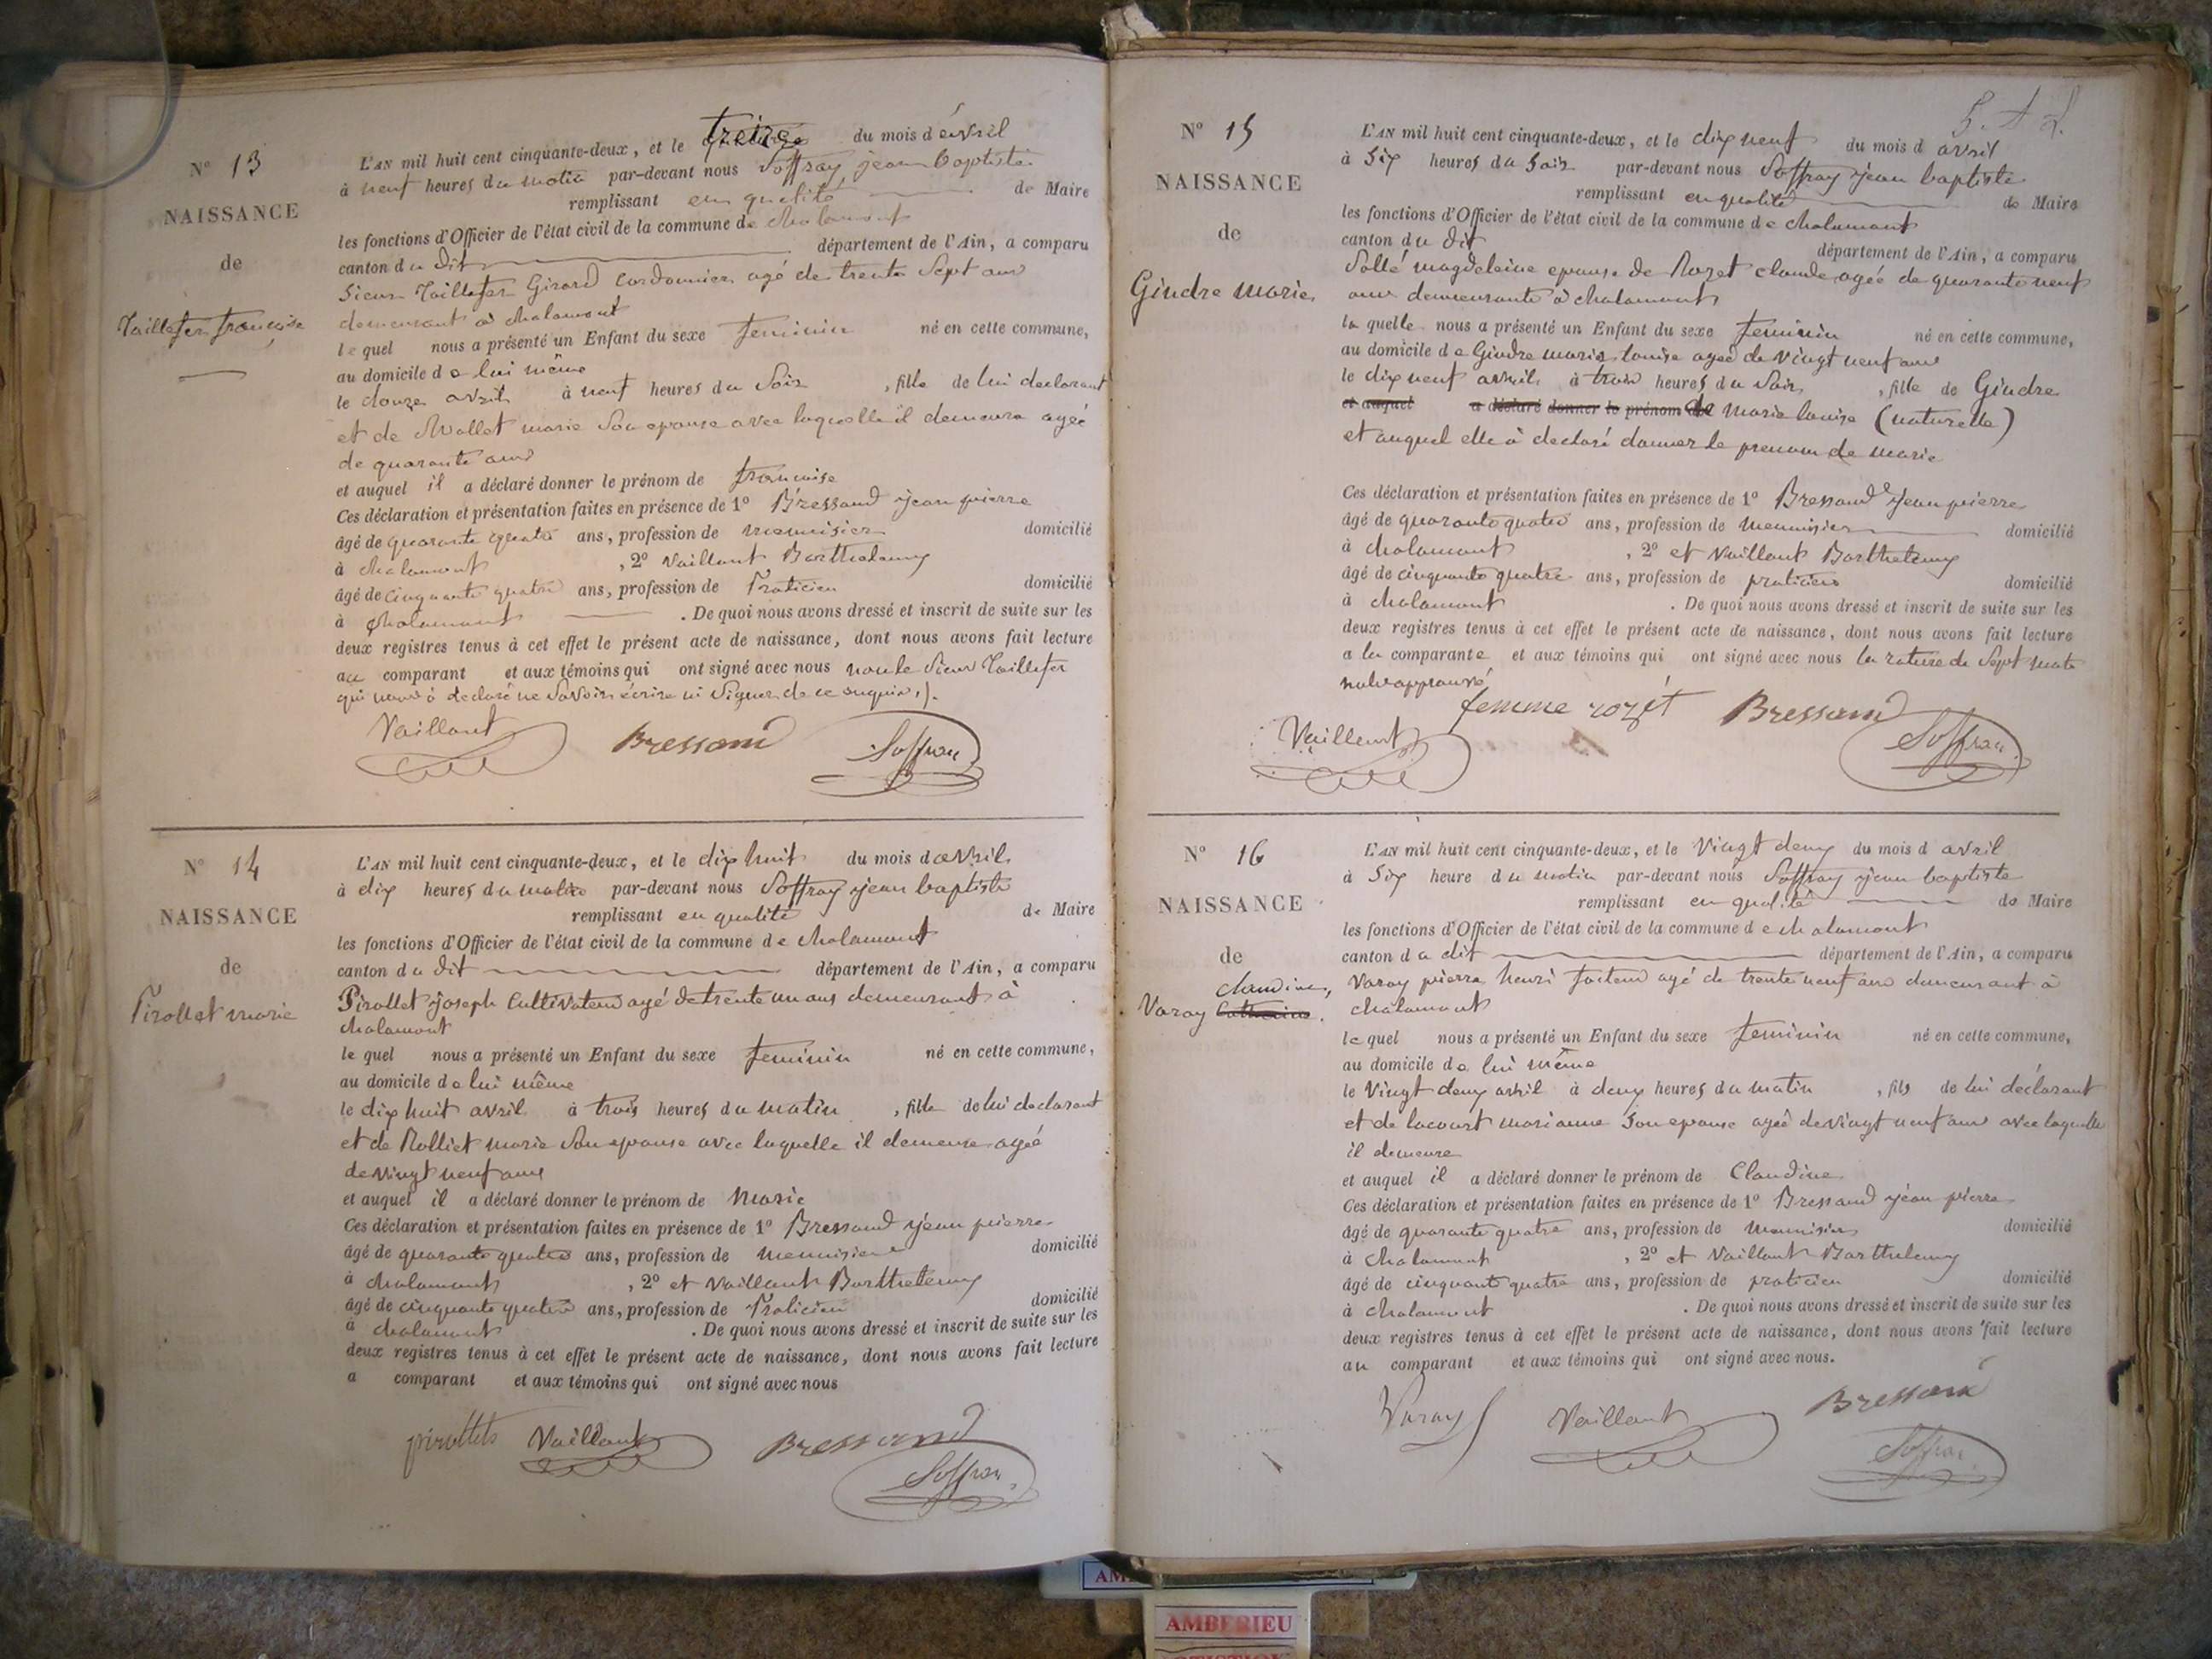 N° 13
NAISSANCE
de
Taillefer françoise
L'AN mil huit cent cinquante-deux, et le treize du mois d'avril
à neuf heures du matin par-devant nous Soffray jean baptiste
remplissant en qualité de Maire
les fonctions d'Officier de l'état civil de la commune de chalamont
canton du dit département de l'Ain, a comparu
Sieur Taillefer Girard Cordonnier agé de trente Sept ans
demeurant à chalamont
le quel nous a présenté un Enfant du sexe feminin né en cette commune,
au domicile de lui même
le douze avril à neuf heures du Soir, fille de lui declarant
et de marie Son epouse avec laquelle il demeure agée
de quarante ans
et auquel il a déclaré donner le prénom de françoise
Ces déclaration et présentation faites en présence de 1° Bressand jean pierre
âgé de quarante quatre ans, profession de menuisier domicilié
à chalamont, 2° Vaillant Barthelemy
âgé de cinquante quatre ans, profession de Praticien domicilié
à chalamont. De quoi nous avons dressé et inscrit de suite sur les
deux registres tenus à cet effet le présent acte de naissance, dont nous avons fait lecture
au comparant et aux témoins qui ont signé avec nous non le Sieur Taillefer
qui nous à declaré ne Savoir écrire ni Signer de ce enquis ./.
Vaillant Bressand Soffray
N° 14
NAISSANCE
de
Pirollet marie
L'AN mil huit cent cinquante-deux, et le dix huit du mois d avril
à dix heures du matin par-devant nous Soffray jean baptiste
remplissant en qualité de Maire
les fonctions d'Officier de l'état civil de la commune de chalamont
canton du dit département de l'Ain, a comparu
Pirollet joseph Cultivateur agé de trente un ans demeurant à
chalamont
le quel nous a présenté un Enfant du sexe feminin né en cette commune,
au domicile de lui même
le dix huit avril à trois heures du matin, fille de lui declarant
et de Rolliet marie Son epouse avec laquelle il demeure agée
de vingt neuf ans
et auquel il a déclaré donner le prénom de Marie
Ces déclaration et présentation faites en présence de 1° Bressand jean pierre
âgé de quarante quatre ans, profession de menuisier domicilié
à chalamont, 2° et Vaillant Barthelemy
âgé de cinquante quatre ans, profession de Praticien domicilié
à chalamont. De quoi nous avons dressé et inscrit de suite sur les
deux registres tenus à cet effet le présent acte de naissance, dont nous avons fait lecture
a comparant et aux témoins qui ont signé avec nous
Vaillant Bressand
Soffray
N° 15
NAISSANCE
de
Gindre marie
L'AN mil huit cent cinquante-deux, et le dix neuf du mois d avril
à Six heures du Soir par-devant nous Soffray jean baptiste
remplissant en qualité de Maire
les fonctions d'Officier de l'état civil de la commune de chalamont
canton du dit département de l'Ain, a comparu
Sollé magdeleine epouse de Rozet claude agée de quarante neuf
ans demeurante à chalamont
la quelle nous a présenté un Enfant du sexe feminin né en cette commune,
au domicile de Gindre marie louise agée de vingt neuf ans
le dix neuf avril à trois heures du Soir, fille de Gindre
et auquel a déclaré donner le prénom de marie louise (naturelle)
et auquel elle à declaré donner le prenom de marie
Ces déclaration et présentation faites en présence de 1° Bressand jean pierre
âgé de quarante quatre ans, profession de menuisier domicilié
à chalamont, 2° et Vaillant Barthelemy
âgé de cinquante quatre ans, profession de praticien domicilié
à chalamont. De quoi nous avons dressé et inscrit de suite sur les
deux registres tenus à cet effet le présent acte de naissance, dont nous avons fait lecture
a la comparante et aux témoins qui ont signé avec nous la rature de Sept mots
nuls approuvé
femme rozet Bressand
Vaillant Soffray
N° 16
NAISSANCE
de
claudine,
Varay Catherine.
L'AN mil huit cent cinquante-deux, et le Vingt deux du mois d avril
à Six heure du matin par-devant nous Soffray jean baptiste
remplissant en qualité de Maire
les fonctions d'Officier de l'état civil de la commune d e chalamont
canton du dit département de l'Ain, a comparu
Varay pierre henri agé de trente neuf ans demeurant à
chalamont
le quel nous a présenté un Enfant du sexe feminin né en cette commune,
au domicile de lui même
le Vingt deux avril à deux heures du matin, fils de lui déclarant
et de lacourt marianne Son epouse agée de vingt neuf ans avec laquelle
il demeure
et auquel il a déclaré donner le prénom de Claudine
Ces déclaration et présentation faites en présence de 1° Bressand jean pierre
âgé de quarante quatre ans, profession de menuisier domicilié
à chalamont, 2° et Vaillant Barthelemy
âgé de cinquante quatre ans, profession de praticien domicilié
à chalamont. De quoi nous avons dressé et inscrit de suite sur les
deux registres tenus à cet effet le présent acte de naissance, dont nous avons fait lecture
au comparant et aux témoins qui ont signé avec nous.
Varay Vaillant Bressand
Soffray
AMBERIEU